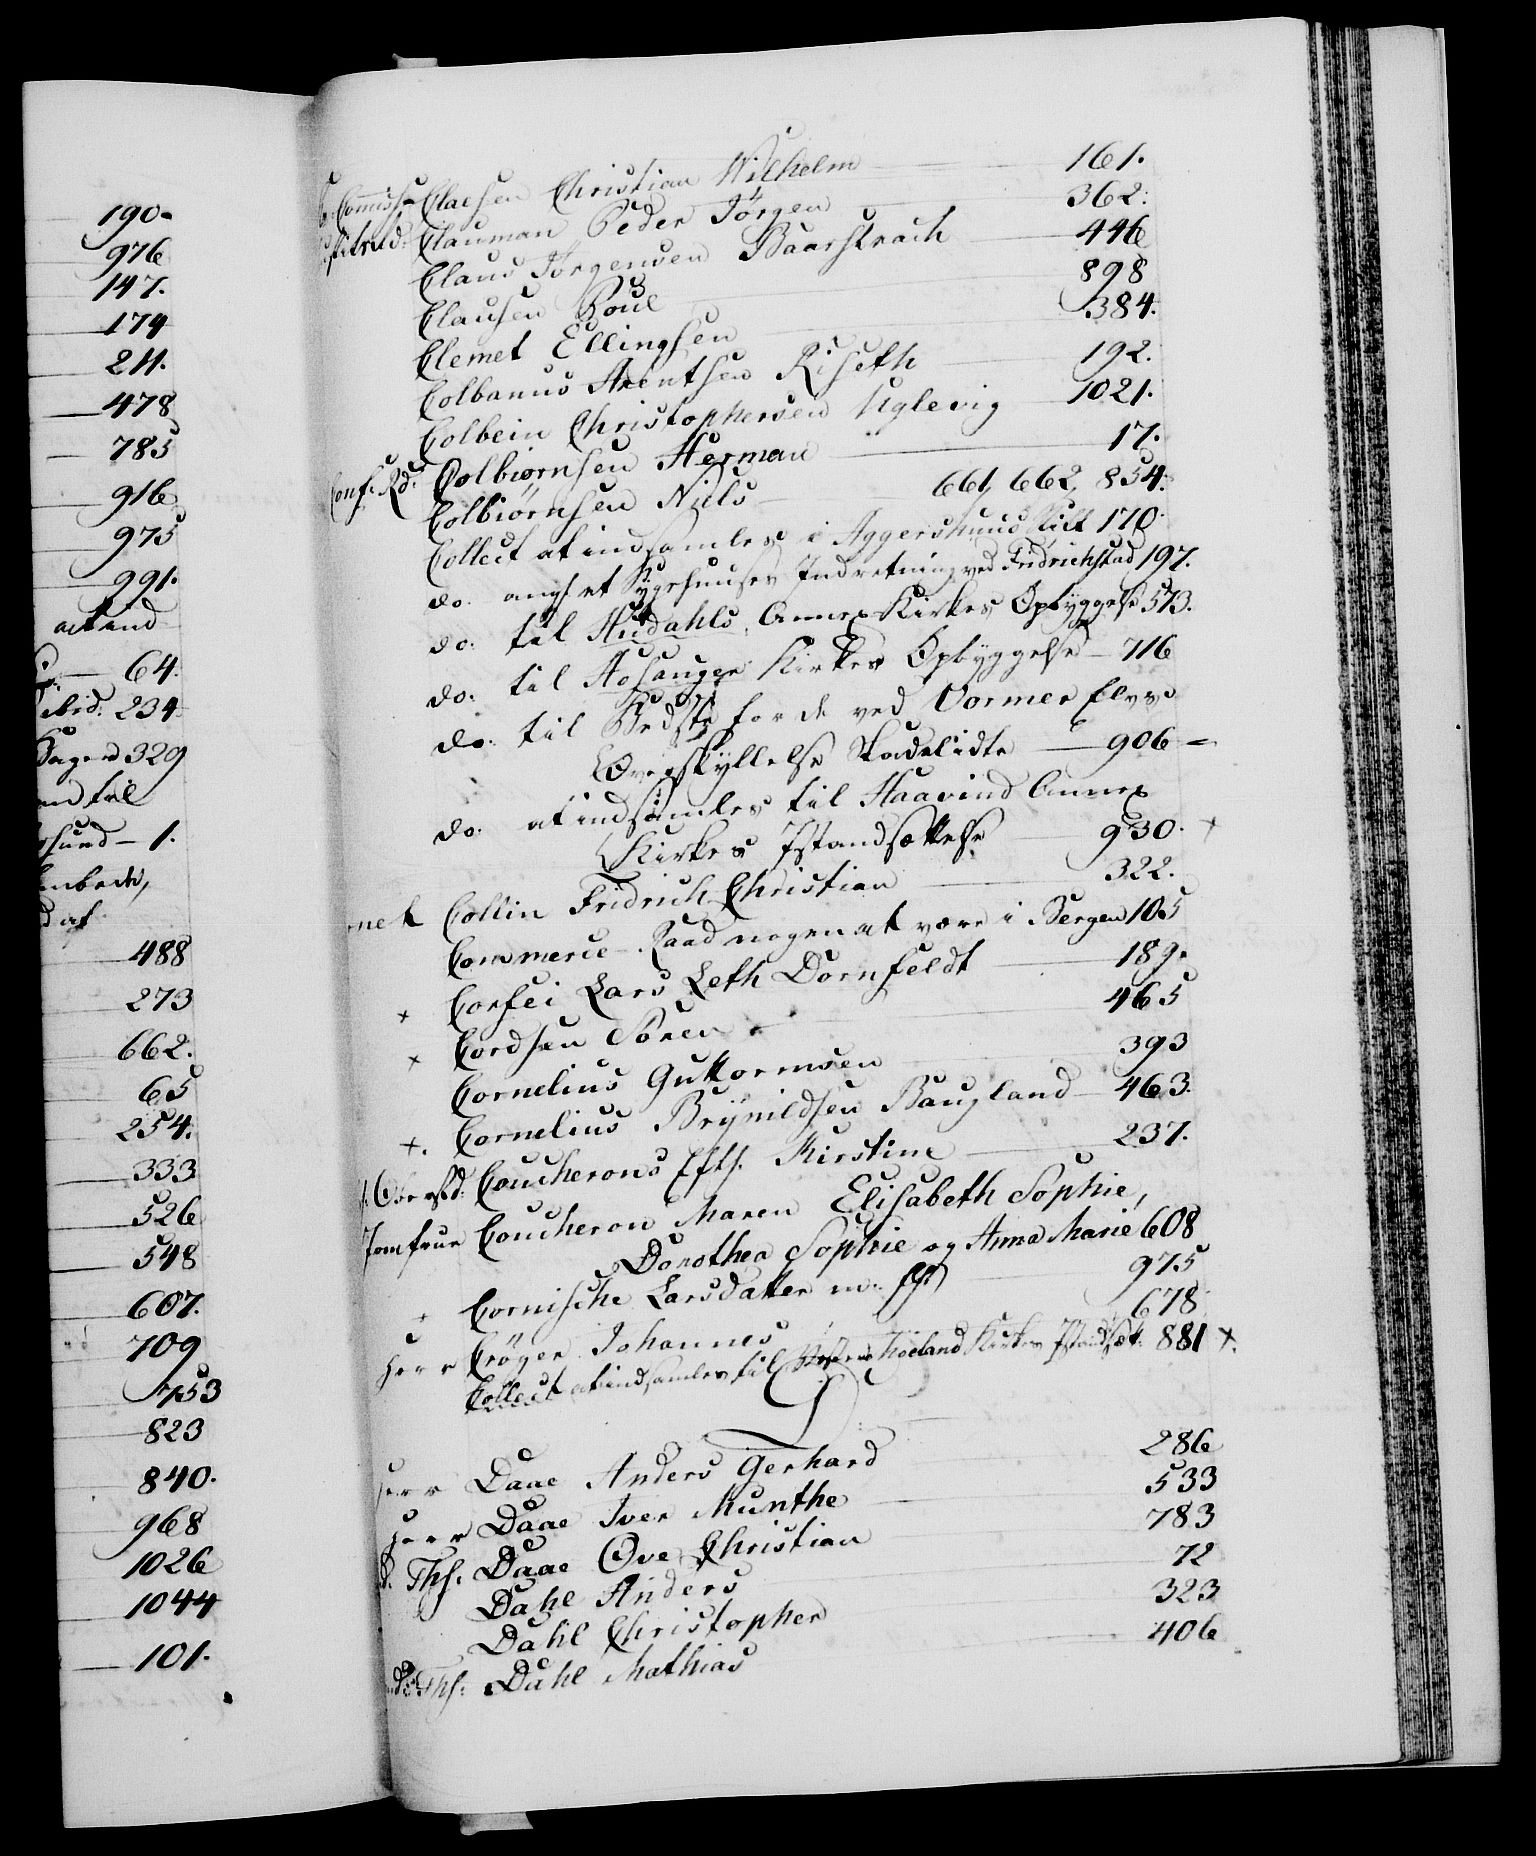 190.
976
147.
174
211.
478
785
916
975
991.
at ind
64.
234
Sager 329
til
sund – 1.
af
488
273
662.
65
254.
333
526
548
607.
709
753
823
840.
968
1026
1044
101.
Commiss: Claesen Christian Wilhelm 161.
Clauman Peder Jörgen 362.
Claus Jörgensen Baarstrach 446
Clausen Poul 898
Clemet Ellingsen 384.
Colbanus Arentsen Riseth 192.
Colbein Christophersen Uglevig 1021.
Conf: Rd: Colbiørnsen Herman 17.
Colbiørnsen Niels 661, 662, 854.
Collect at indsamles i Aggershuus Stift 170.
do. ang: et Sygehuuses Indretning ved Fridrichstad 197.
do: til Hudahls Annex Kirkes Opbyggelse 573.
do: til Hosanger Kirkes Opbyggelse – 716
do: til Bedste for de ved Vormen Elvs
Overskyllelse Skadelidte – 906 –
do: at indsamles til Haavind Annex
Kirkes Istandsættelse 930. +
Collin Fridrich Christian 322.
Commerce-Raad nogen at være i Bergen 105
+ Corfei Lars Leth Dornfeldt 189.
+ Cordsen Sören 465
Cornelius Guttormsen 393
+. Cornelius Brÿnildsen Baugland – 463.
Coucherons Eft: Kirstine 237.
Jomfrue Coucheron Maren Elisabeth Sophie,
Dorothea Sophie og Anna Marie 608
+ Cornische Larsdatter m: fl: 975
Herr Cröger Johannes 678
Collect at indsamles til Høeland Kirkes Istandsæt: 881 +.
D
Herr Daae Anders Gerhard 286
Herr Daae Iver Munthe 533
Ths: Daae Ove Christian 783
Dahl Anders 72
Dahl Christopher 323
Ths: Dahl Mathias 406